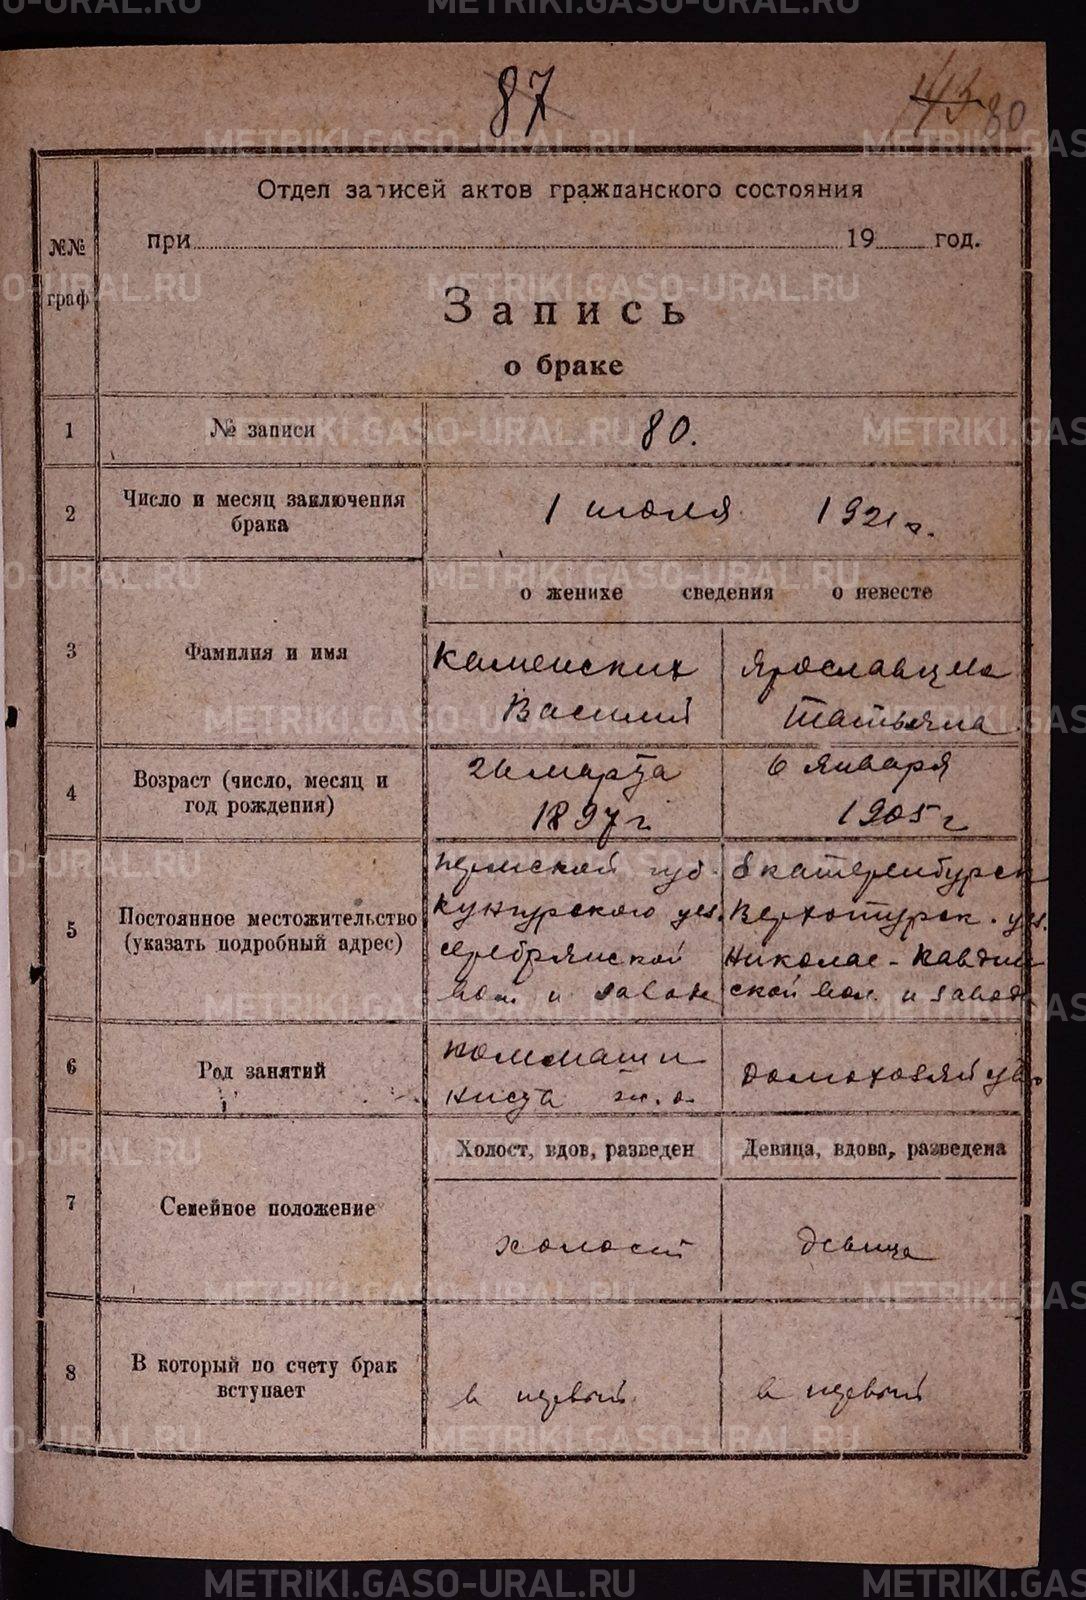 87
143 80
Отдел записей актов гражданского состояния
при 19 год.
№№ граф
Запись
о браке
1 № записи 80.
2 Число и месяц заключения брака 1 июля 1921 г.
о женихе сведения о невесте
3 Фамилия и имя
Каменских Ярославцева
Василий Татьяна
4 Возраст (число, месяц и год рождения)
26 марта 6 января
1897 г 1905 г
5 Постоянное местожительство (указать подробный адрес)
Пермской губ. Екатеринбургск
Кунгурского уез. Верхотурск. уез.
Серебрянской Николае-Павдин
вол и завода ской вол. и завод
6 Род занятий
поммаши домохозяйка
ниста ж.д.
Холост, вдов, разведен Девица, вдова, разведена
7 Семейное положение
холост девица
8 В который по счету брак вступает
в первый в первый
METRIKI.GASO-URAL.RU